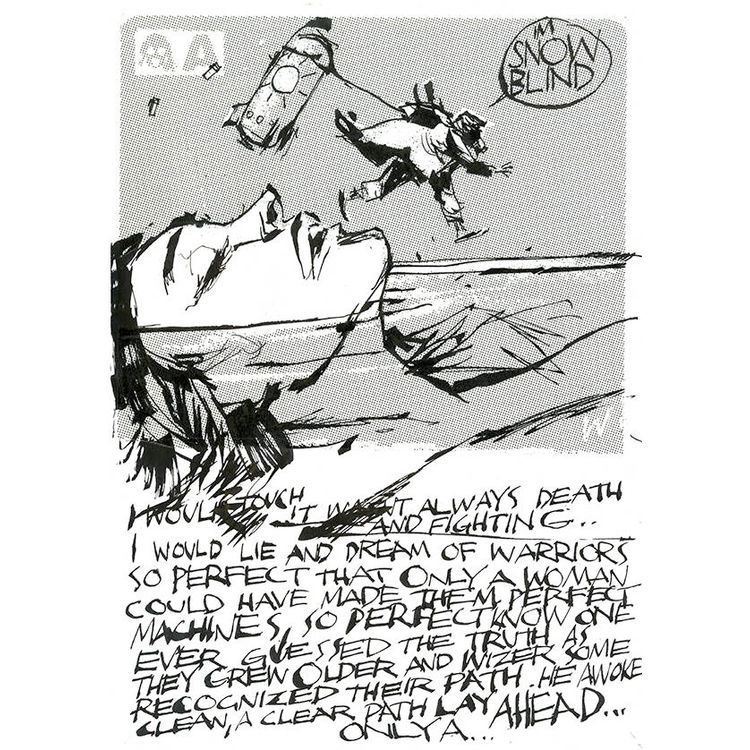 A
IM
SNOW
BLIND
W
I WOULD TOUCH IT WASNT ALWAYS DEATH
AND FIGHTING..
I WOULD LIE AND DREAM OF WARRIORS
SO PERFECT THAT ONLY A WOMAN
COULD HAVE MADE THEM PERFECT
MACHINES, SO PERFECT KNOW ONE
EVER GUESSED THE TRUTH AS
THEY GREW OLDER AND WIZER SOME
RECOGNIZED THEIR PATH. HE AWOKE
CLEAN, A CLEAR PATH LAY AHEAD...
ONLY A...